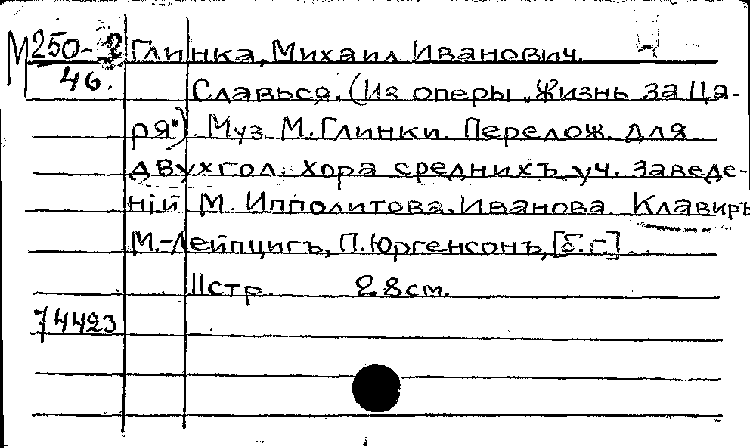 М 250-2 Глинка, Михаил Иванович.
46. Славься. (Из оперы "Жизнь за Ца-
ря") Муз. М. Глинки. Перелож. для
двухгол. хора среднихъ уч. заведе-
нiй М. Ипполитова-Иванова. Клавиръ
М.-Лейпцигъ, П. Юргенсонъ, [б.г.]
11стр. 28см.
74423